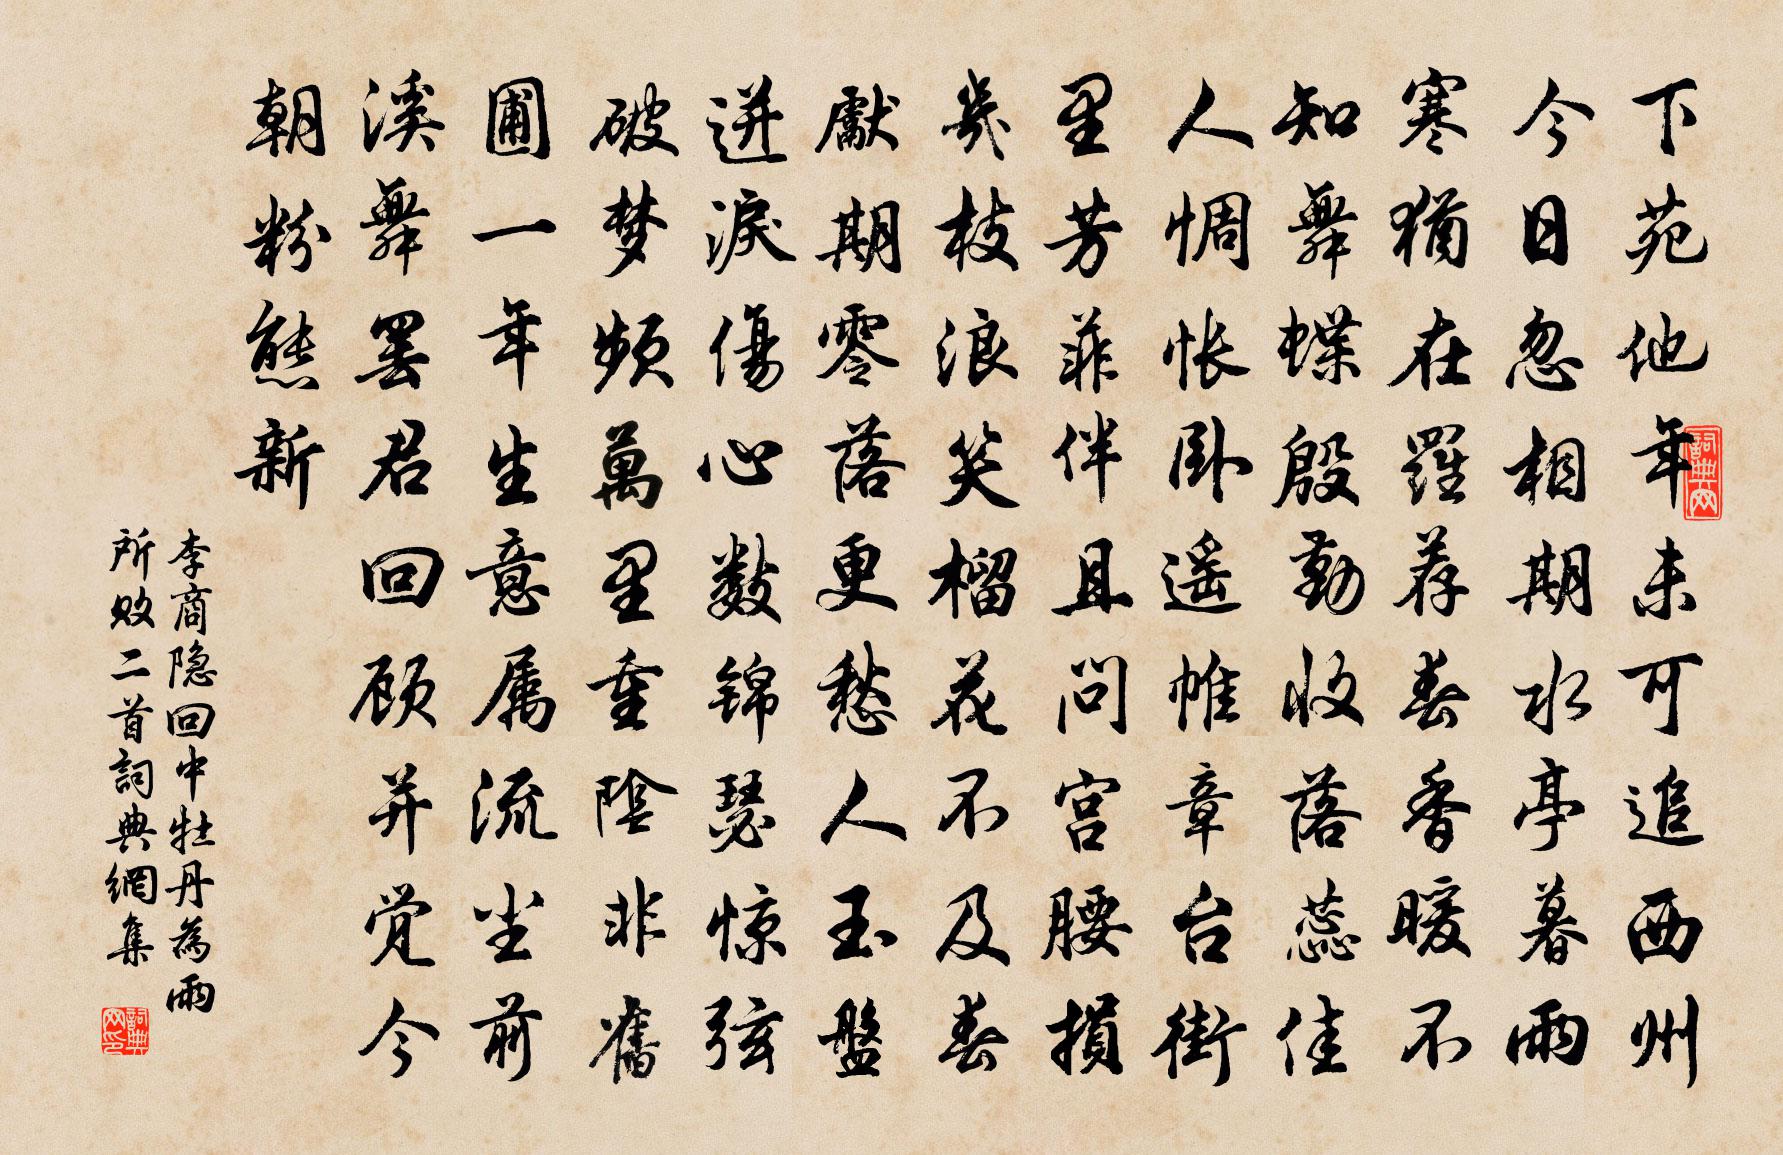 下苑他年未可追西州
今日忽相期水亭暮雨
寒猶在羅荐春香暖不
知舞蝶殷勤收落蕊佳
人惆怅卧遥帷章台街
里芳菲伴且问宫腰損
幾枝浪笑榴花不及春
獻期零落更愁人玉盤
迸淚傷心数锦瑟惊弦
破梦频萬里重陰非舊
圃一年生意属流尘前
溪舞罢君回顾并觉今
朝粉態新
李商隐回中牡丹為雨
所败二首詞典網集
詞典网
詞典网印